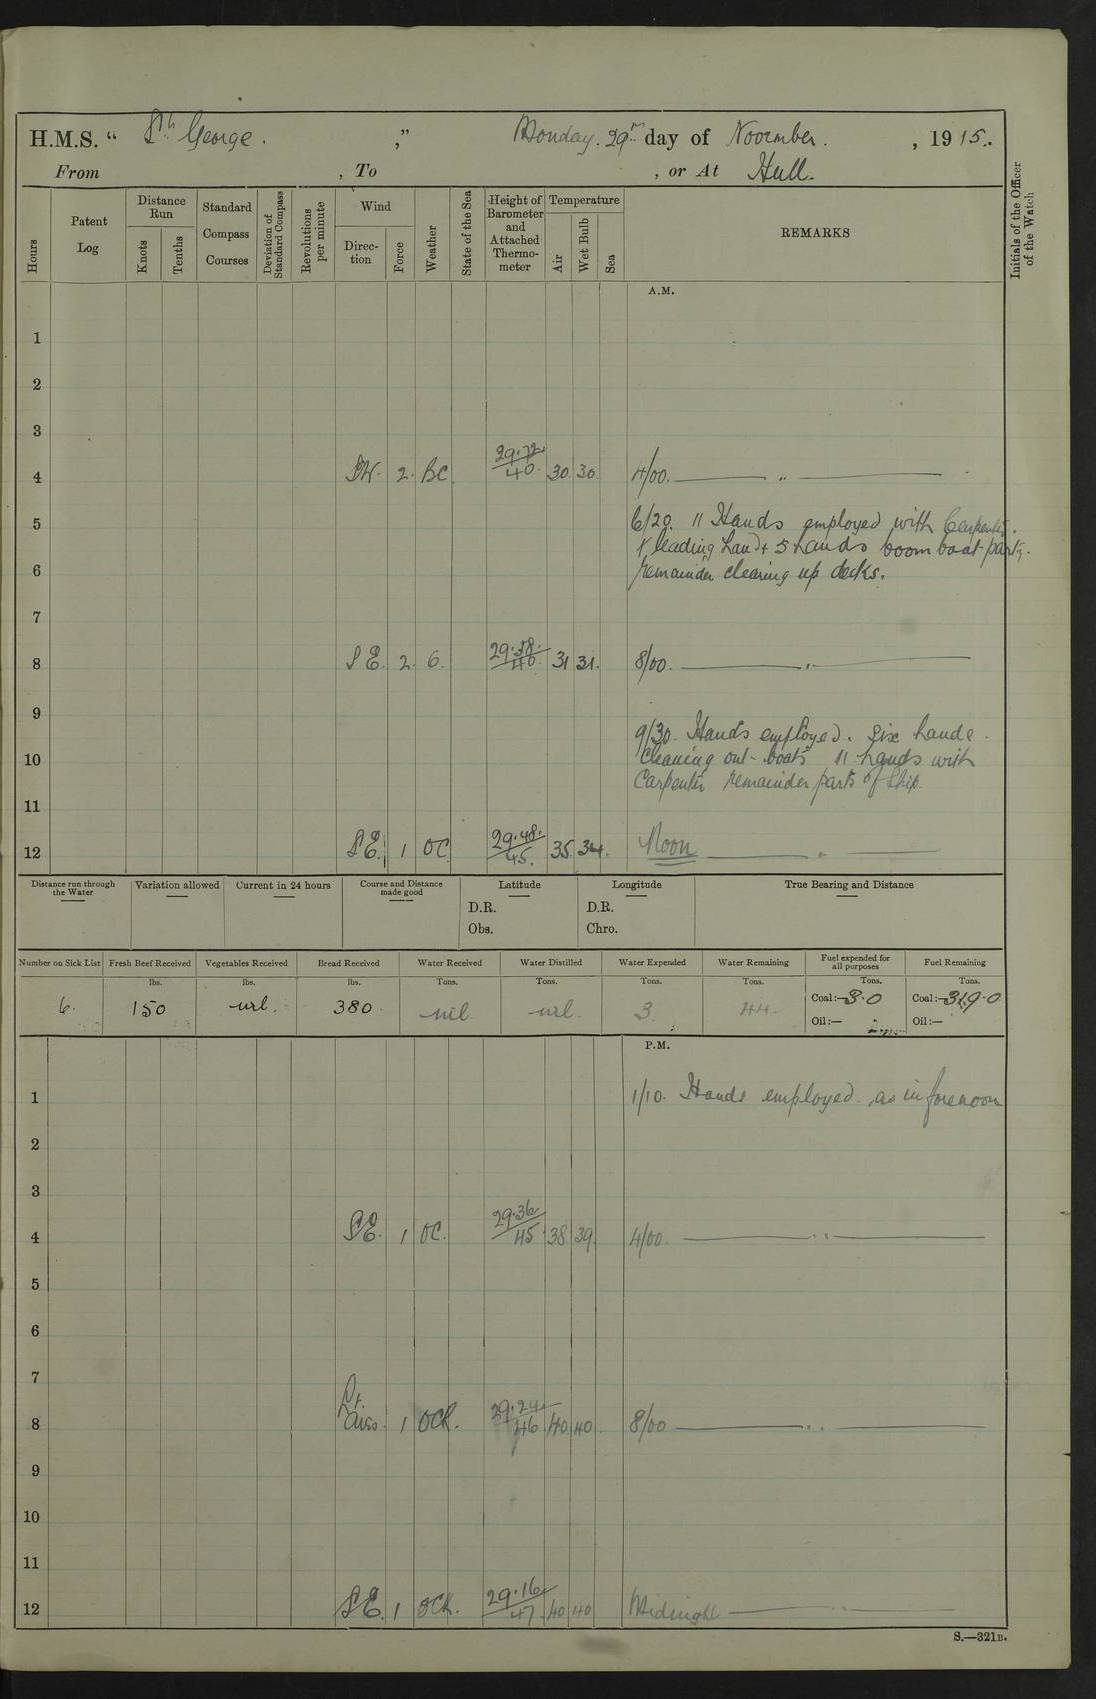 H.M.S. “ St George. ”, Monday. 29th day of November. , 1915.
From , To , or At Hull.
Hours
Patent Log
Distance Run
Knots
Tenths
Standard Compass Courses
Deviation of Standard Compass
Revolutions per minute
Wind
Direc-tion
Force
Weather
State of the Sea
Height of Barometer and Attached Thermo-meter
Temperature
Air
Wet Bulb
Sea
REMARKS
Initials of the Officer of the Watch
A.M.
1
2
3
4 SW. 2. BC 29.72 40. 30 30 4/00. — „ —
5 6/20. 11 Hands employed with Carpenter.
1 leading hand + 5 hands boom boat party.
6 remainder clearing up decks.
7
8 SE. 2. C. 29.58. 40. 31 31. 8/00. — „ —
9
9/30. Hands employed. Six hands
10 cleaning out boats 11 hands with
Carpenter remainder parts of Ship.
11
12 SE. 1 OC 29.48. 45. 35 34. Noon — „ —
Distance run through the Water
Variation allowed
Current in 24 hours
Course and Distance made good
Latitude
D.R.
Obs.
Longitude
D.R.
Chro.
True Bearing and Distance
Number on Sick List
Fresh Beef Received
Vegetables Received
Bread Received
Water Received
Water Distilled
Water Expended
Water Remaining
Fuel expended for all purposes
Fuel Remaining
lbs. lbs. lbs. Tons. Tons. Tons. Tons. Tons. Tons.
6. 150 nil. 380. nil nil. 3 44. Coal:—8.0 Coal:—319.0
Oil:— Oil:—
P.M.
1 1/10. Hands employed as in forenoon
2
3
4 SE. 1 OC. 29.36 45 38 39. 4/00. — „ —
5
6
7
8 Lt. airs. 1 OCR. 29.24 46 40 40 8/00 — „ —
9
10
11
12 SE. 1 OCR. 29.16 47 40 40 Midnight — „ —
S.—321B.